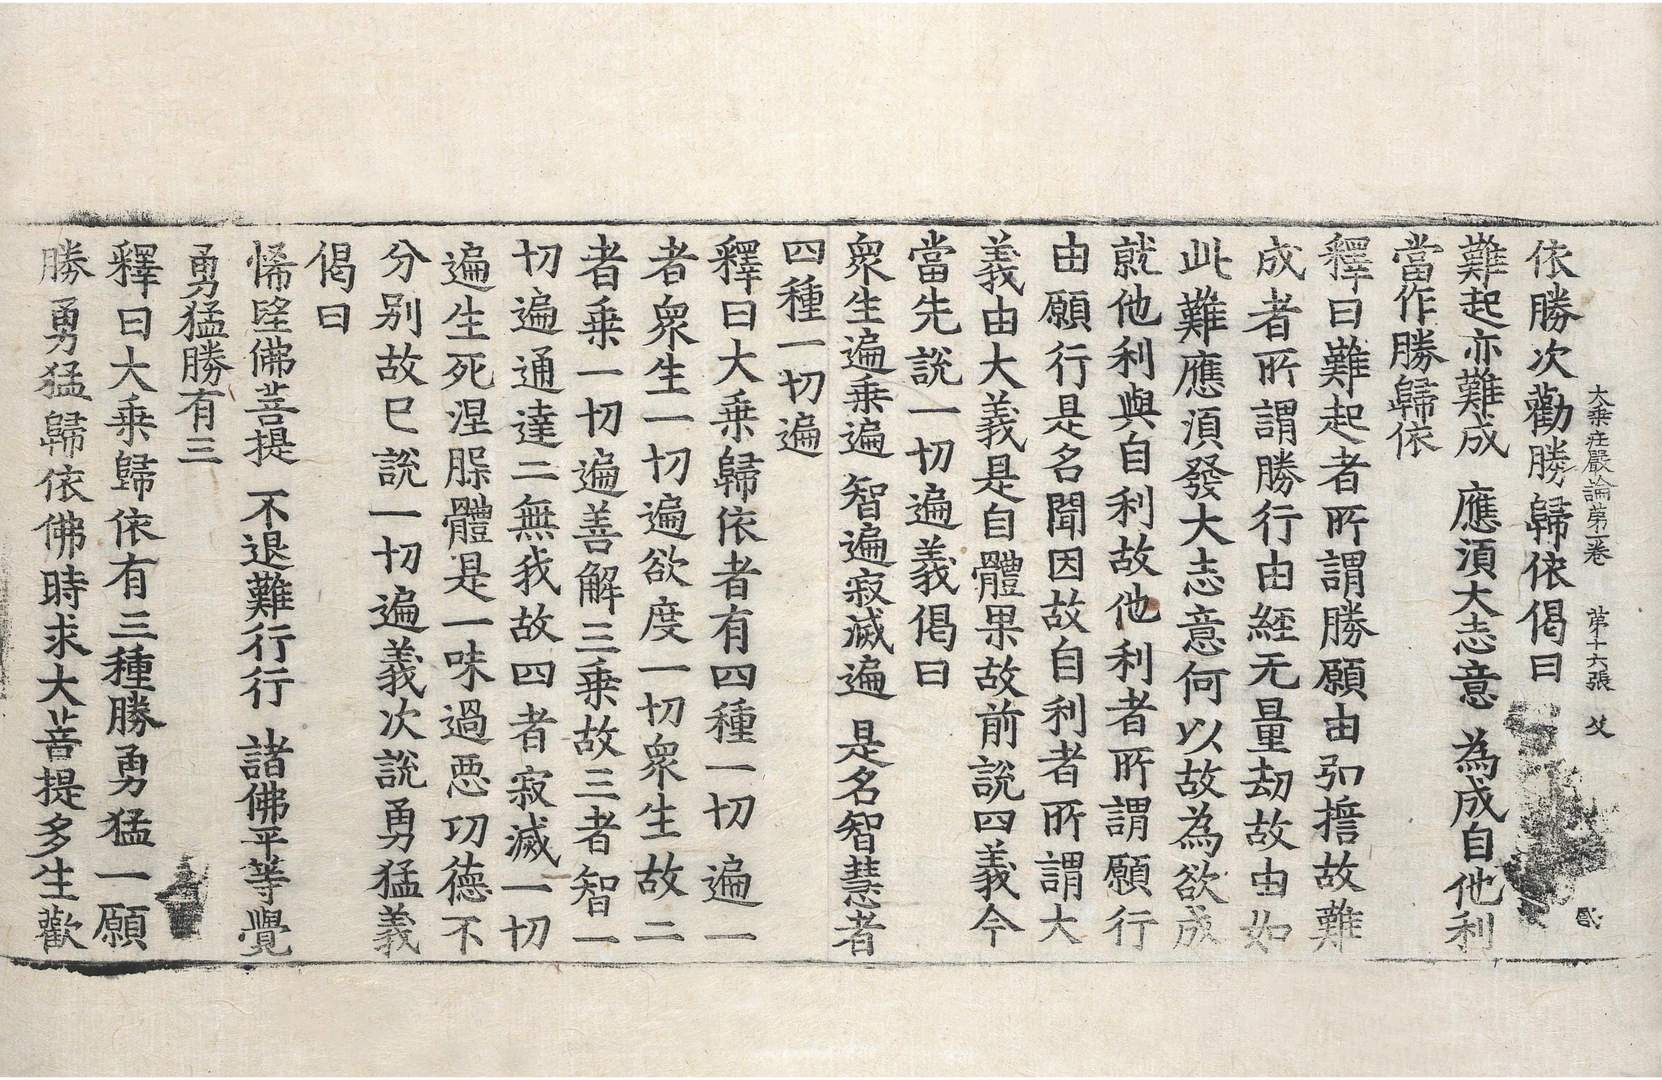 大乘莊嚴論第一卷 第十六張 父
依勝次勸勝歸依偈曰
難起亦難成 應須大志意 為成自他利
當作勝歸依
釋曰難起者所謂勝願由弘擔故難
成者所謂勝行由經无量劫故由如
此難應須發大志意何以故為欲成
就他利與自利故他利者所謂願行
由願行是名聞因故自利者所謂大
義由大義是自體果故前說四義今
當先說一切遍義偈曰
衆生遍乘遍 智遍寂滅遍 是名智慧者
四種一切遍
釋曰大乘歸依者有四種一切遍一
者衆生一切遍欲度一切衆生故二
者乘一切遍善解三乘故三者智一
切遍通達二無我故四者寂滅一切
遍生死涅槃體是一味過惡功德不
分别故已說一切遍義次說勇猛義
偈曰
悕望佛菩提 不退難行行 諸佛平等覺
勇猛勝有三
釋曰大乘歸依有三種勝勇猛一願
勝勇猛歸依佛時求大菩提多生歡